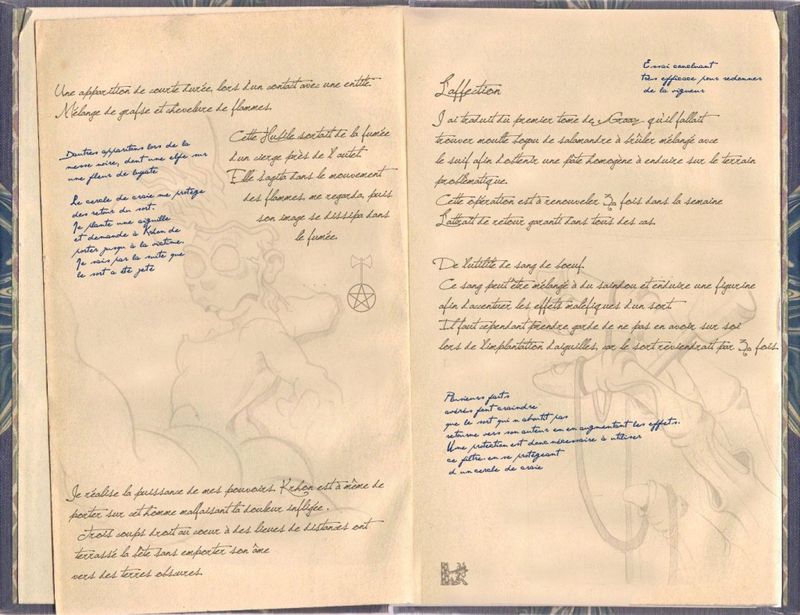 Une apparition de courte durée, lors d'un contait avec une entité.
Mélange de grafse et chevelure de flammes.
Cette Hubile sortait de la fumée
d'un cierge près de l'autel.
Elle s'agita dans le mouvement
des flammes, me regarda, puis
son image se dissipa dans
le fumée.
D'autres apparitons lors de la
messe noire, dont une elfe sur
une fleur de
Le cercle de craie me protège
des retour du sort.
Je plante une aiguille
et demande à Krhon de
porter jusqu'à la victime.
Je sais par la suite que
le sort a été jeté
Je réalise la puissance de mes pouvoirs. Krhon est à même de
porter sur cet homme malfaisant la douleur infligée.
Trois coups droit au coeur à des lieues de distances ont
terrassé la bête sans emporter son âme
vers des terres obsures.
Essai concluant
très efficace pour redonner
de la vigueur
L'affection
J'ai traduit du premier tome de qu'il fallait
trouver moulte de salamandre à brûler mélangé avec
le suif afin d'obtenir une pâte homogène à enduire sur le terrain
problématique.
Cette opération est à renouveler 30 fois dans la semaine
L'attrait de retour garanti dans tous des cas.
De l'utilité de sang de boeuf
Ce sang peut être mélangé à du saindou et enduire une figurine
afin d'accentuer les effets maléfiques d'un sort
Il faut cependant prendre garde de ne pas en avoir sur soi
lors de l'implantation d'aiguilles, car le sort reviendrait par 30 fois.
Plusieurs faits
avérés font craindre
que le sort qui n'aboutit pas
retourne vers son auteur en en augmentant les effets.
Une protection est donc nécessaire à utiliser
ce filtre en se protégeant
d'un cercle de craie